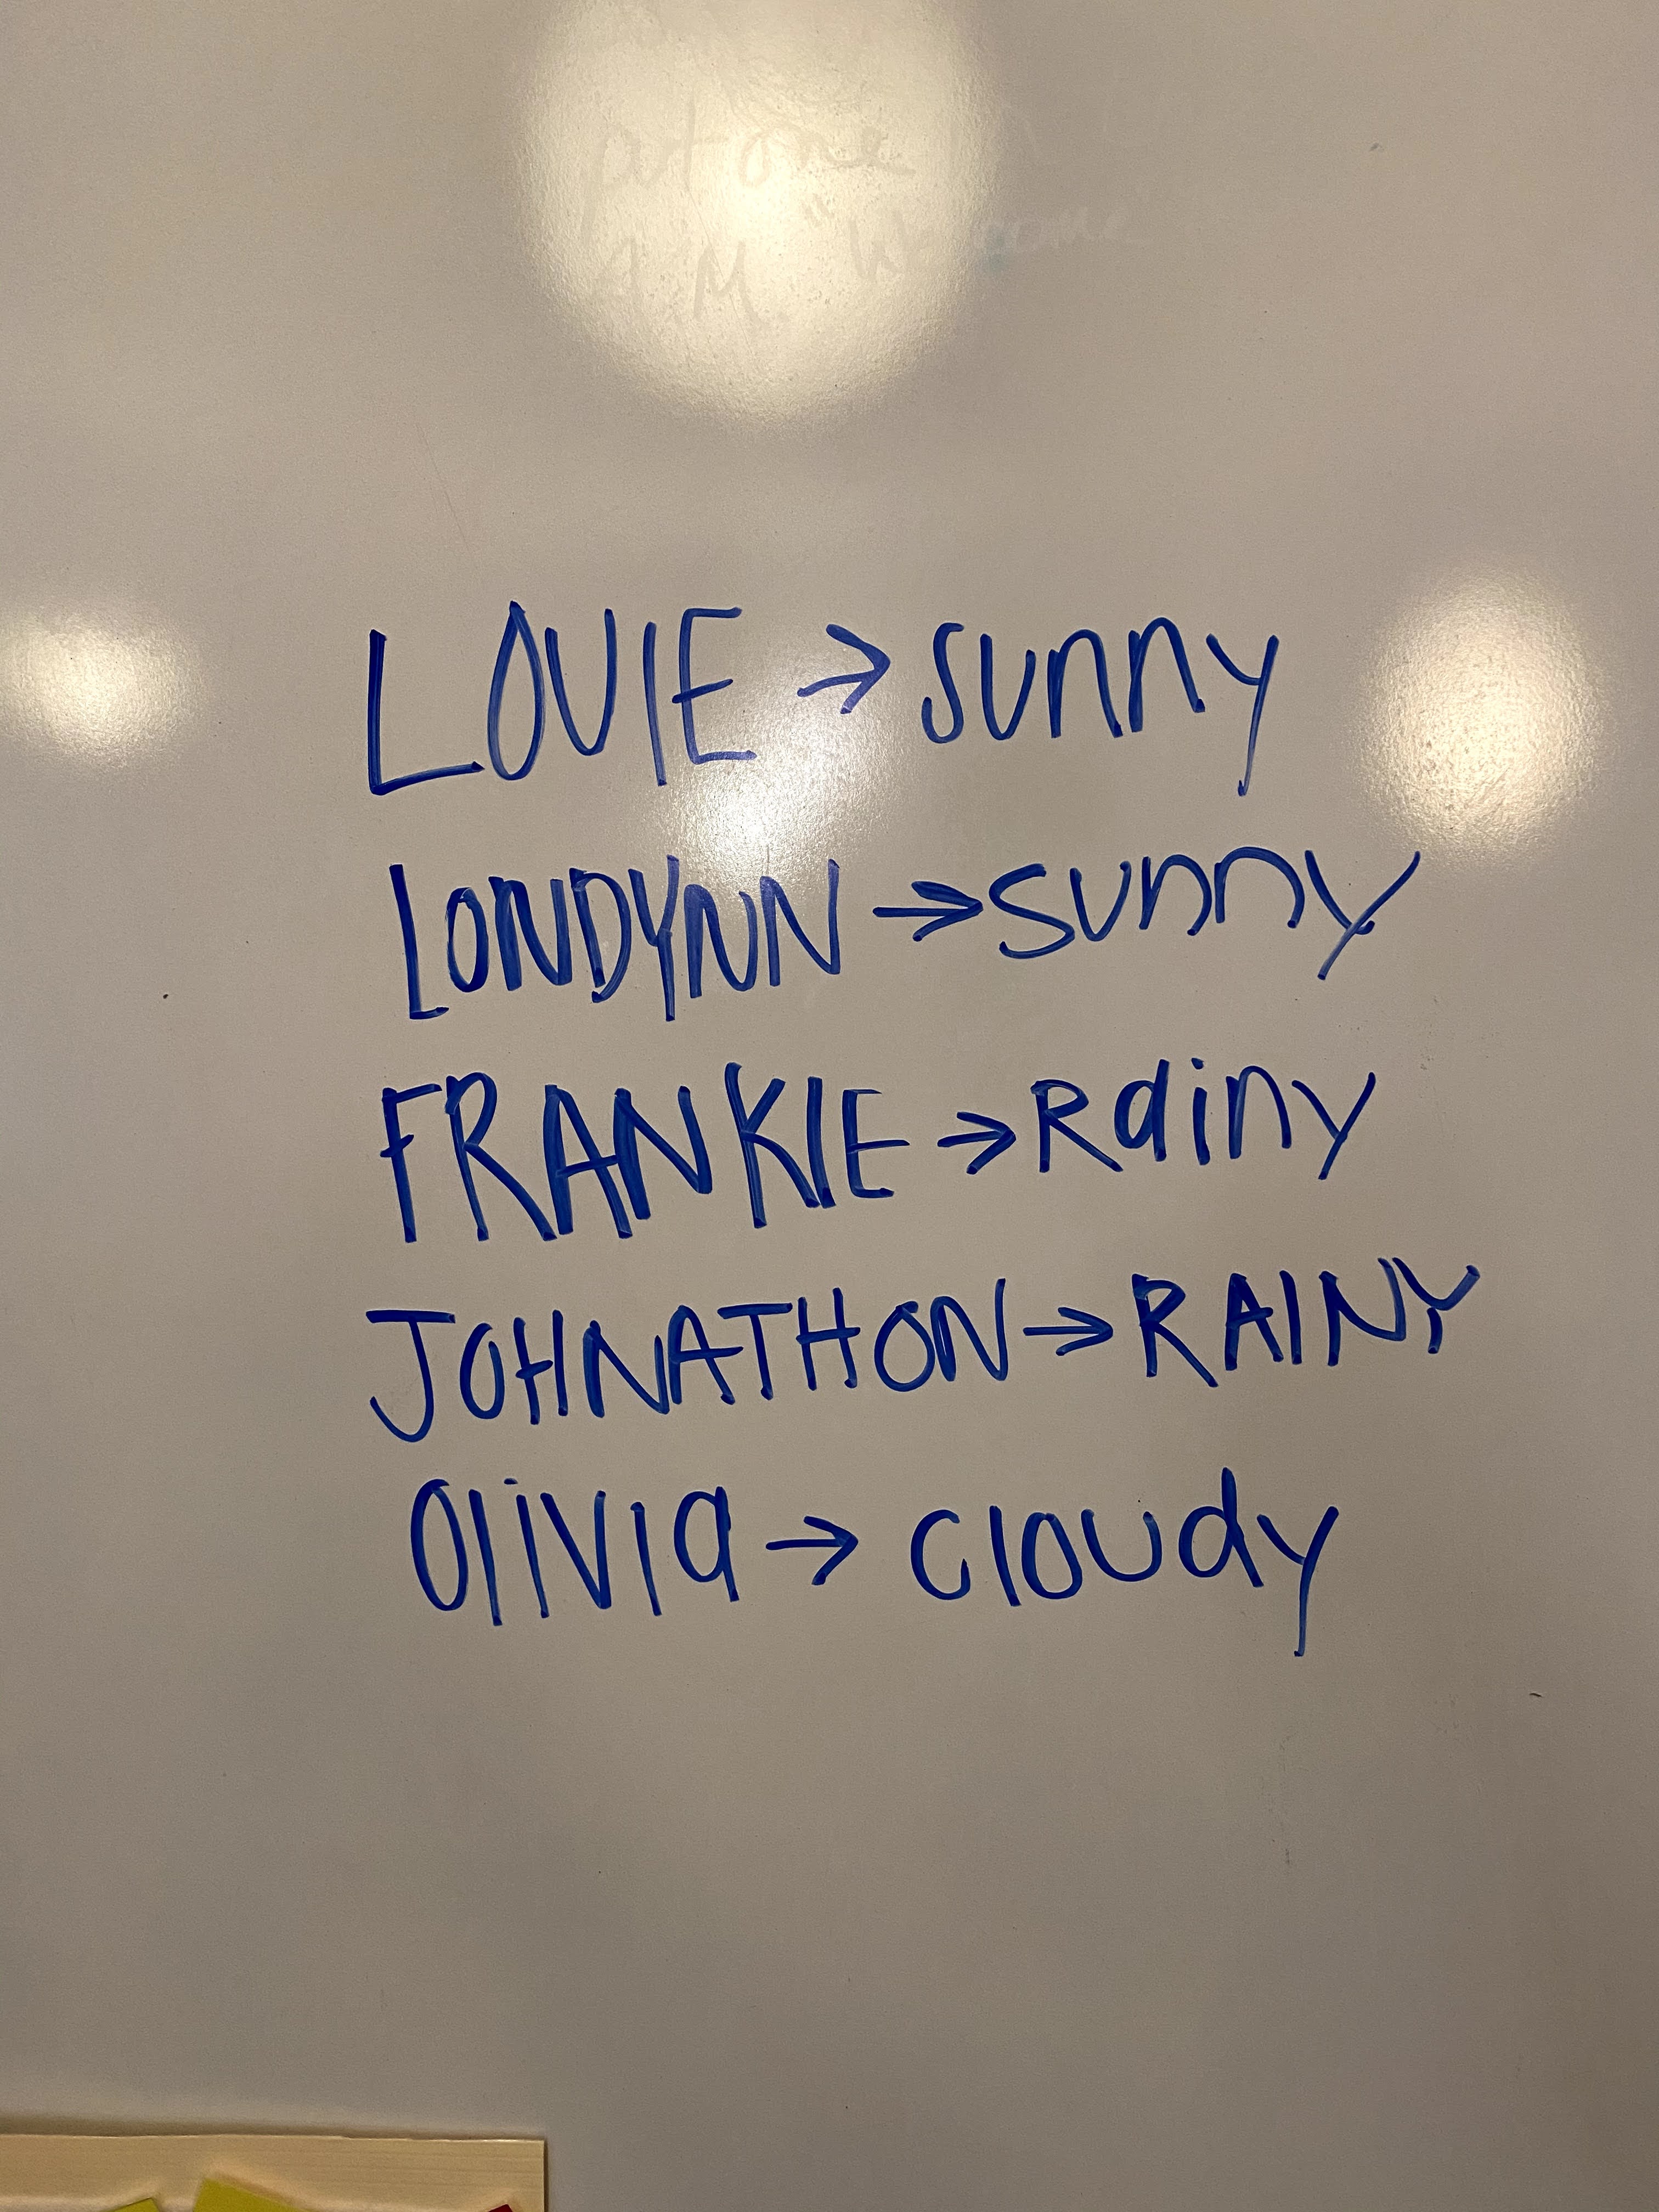 LOUIE → sunny
LONDYNN → sunny
FRANKIE → Rainy
JOHNATHON → RAINY
Olivia → cloudy